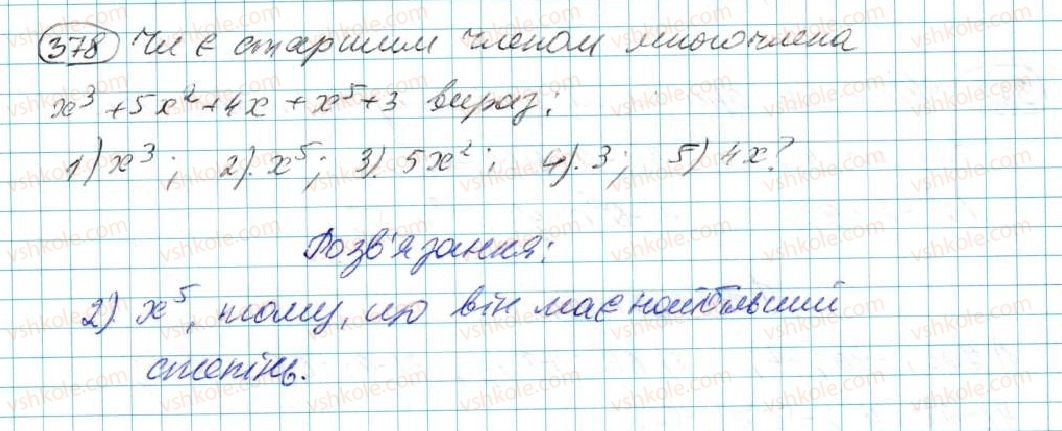 378 Чи є старшим членом многочлена
x³ + 5x² + 4x + x⁵ + 3 вираз:
1) x³; 2). x⁵; 3). 5x²; 4). 3; 5) 4x?
Розв'язання:
2) x⁵, тому, що він має найбільший
степінь.